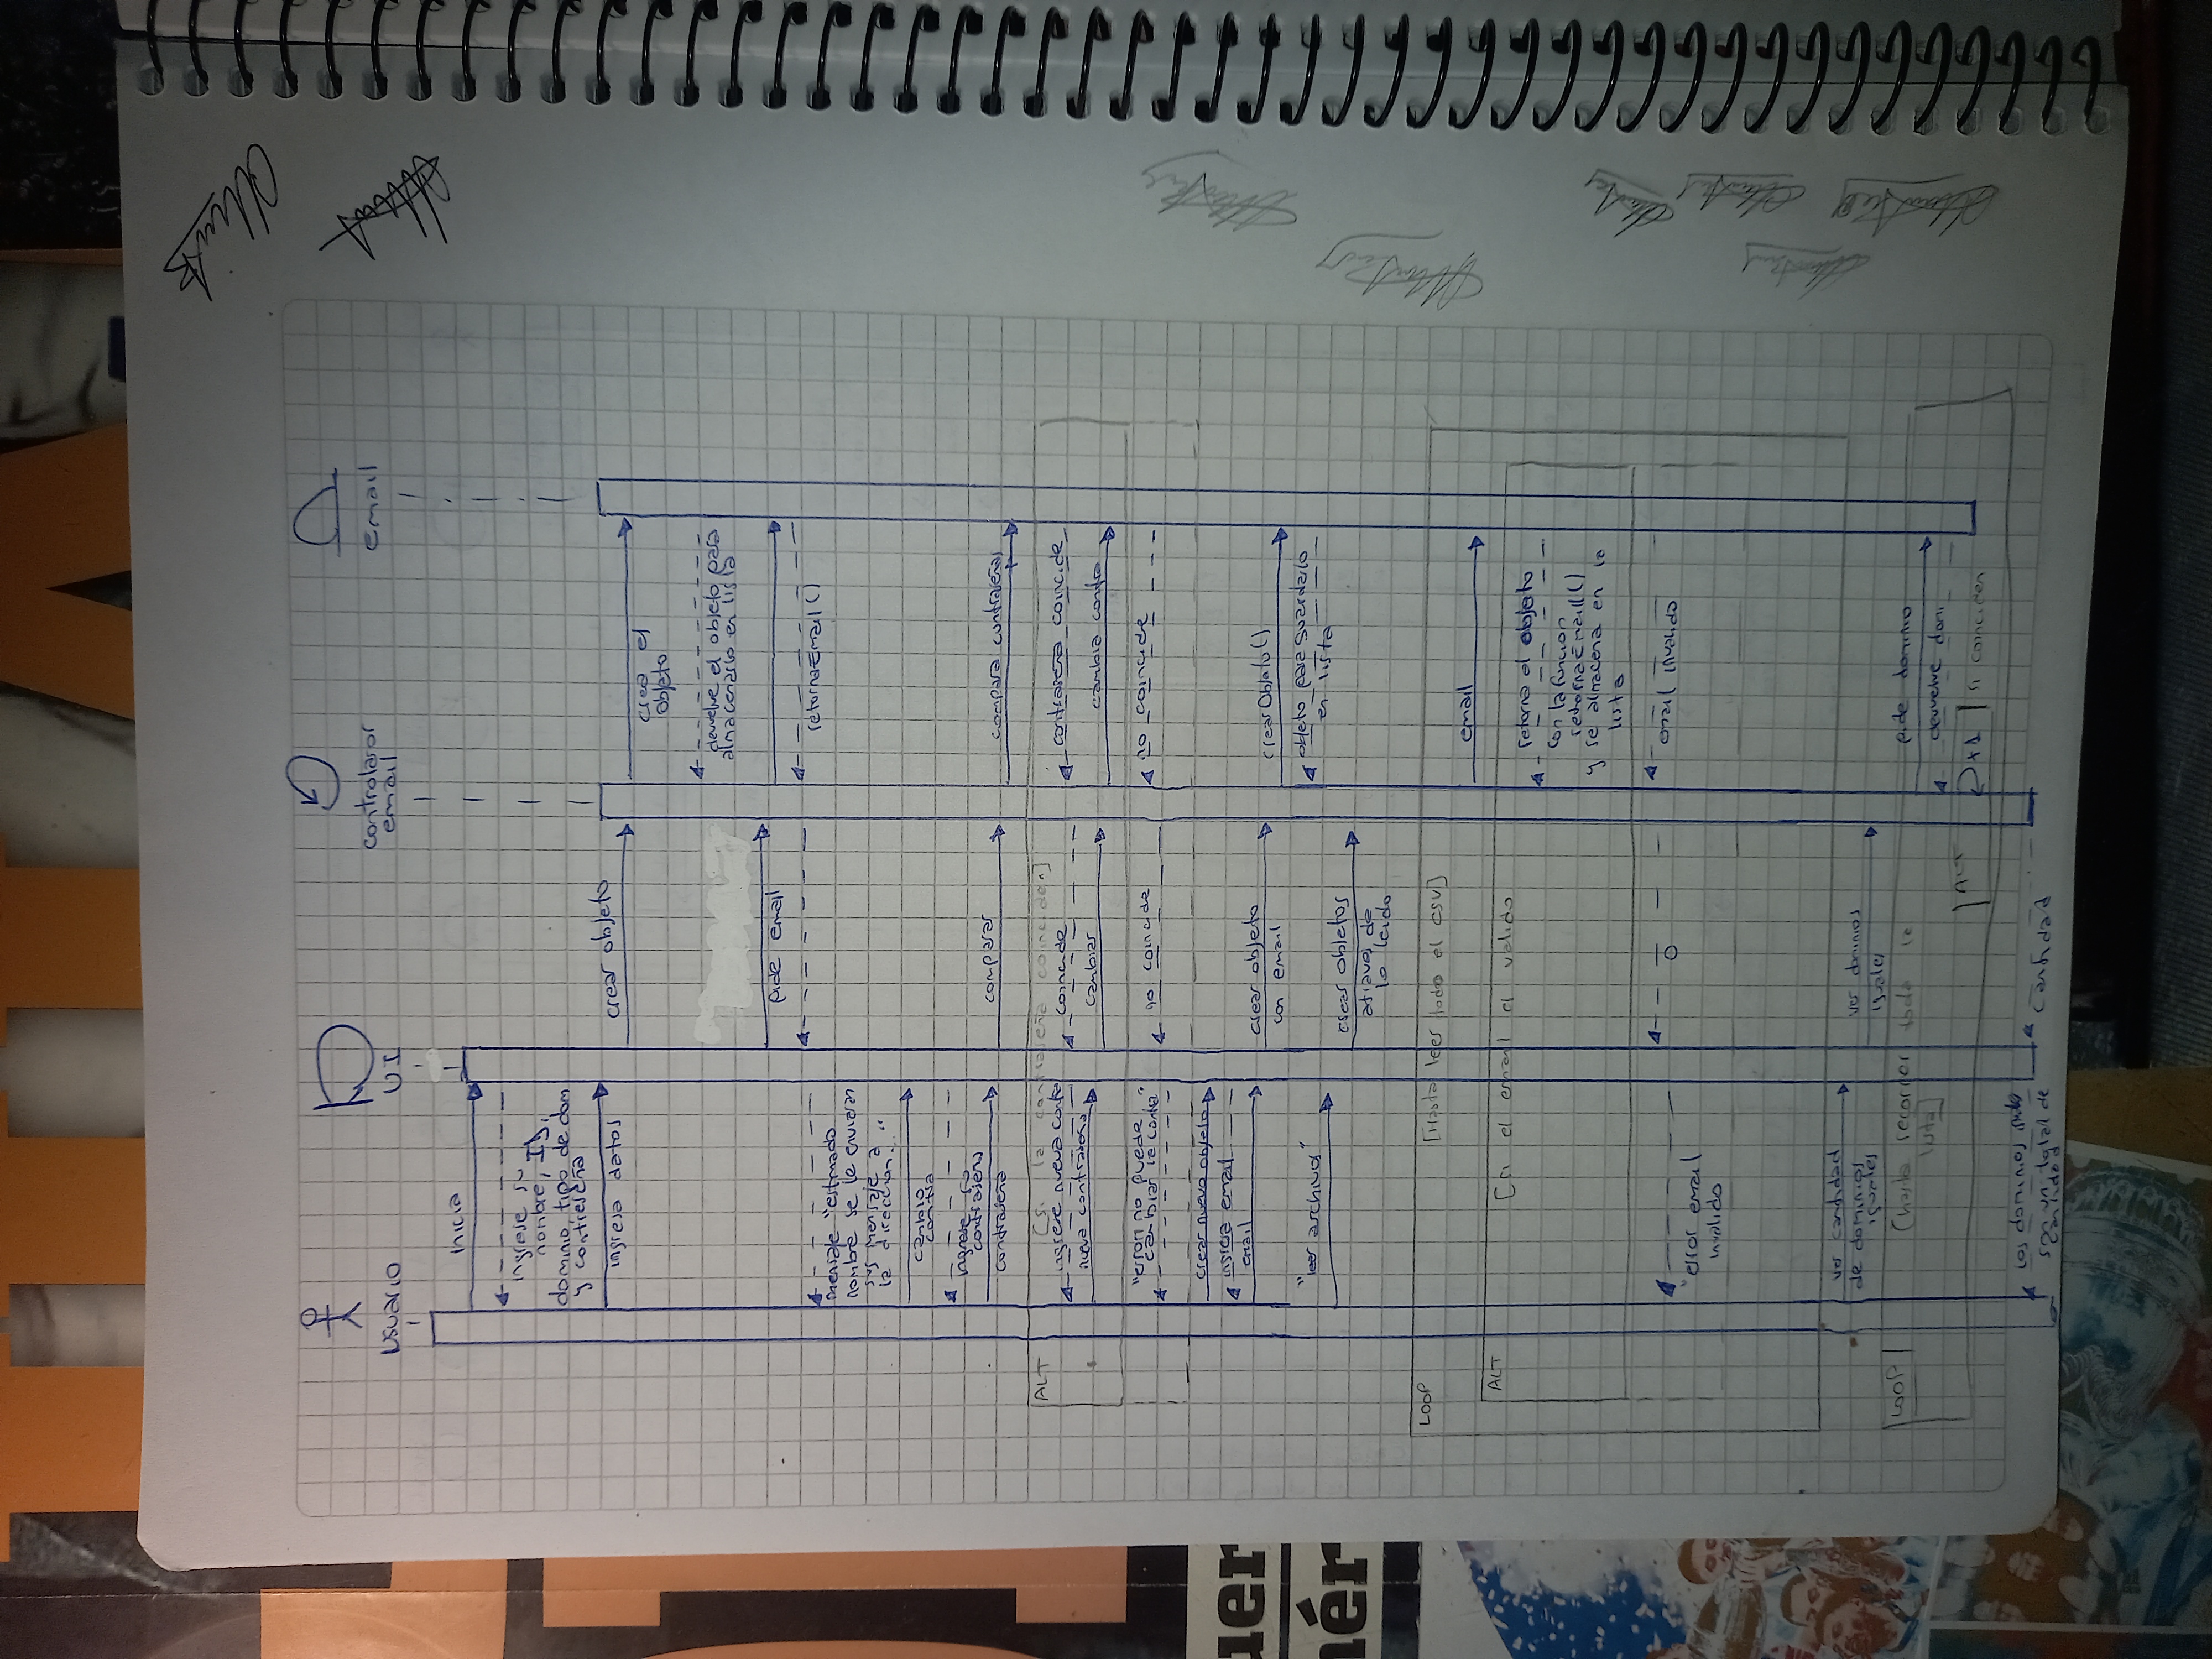 Usuario
UI
controlador
email
email
inicia
ingrese su
nombre, ID,
dominio, tipo de dom
y contraseña
ingresa datos
crear objeto
crea el
objeto
devuelve el objeto para
almacenarlo en lista
pide email
retornaEmail()
mensaje "estimado
nombre se le enviaran
sus mensaje a
la direccion..."
cambio
contra
ingrese su
contraseña
contraseña
comparar
compara contraseñas
ALT
[si la contraseña coinciden]
ingrese nueva contra
coincide
contraseña coincide
nueva contraseña
cambiar
cambia contra
"error no puede
cambiar la contra"
no coincide
no coincide
crear nuevo objeto
ingresa email
email
crear objeto
con email
crearObjeto()
"leer archivo"
objeto para guardarlo
en lista
crear objetos
atravez de
lo leido
LOOP
[Hasta leer todo el csv]
email
ALT
[si el email el valido
retorna el objeto
con la funcion
retornaEmail()
y se almacena en la
lista
0
email invalido
"error email
invalido
ver cantidad
de dominios
iguales
ver dominios
iguales
LOOP
[hasta recorrer toda la
lista]
pide dominio
devuelve domi
ALT
+1
si coinciden
los dominios
son un total de
cantidad
cantidad
uer
nér